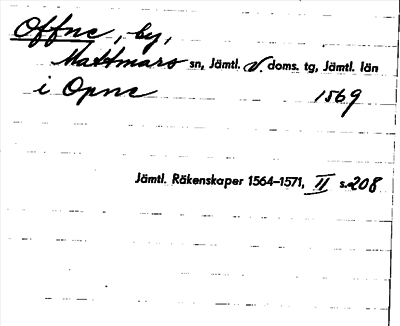 Offne, by,
Mattmars sn, Jämtl. v. doms. tg, Jämtl. län
i Opne 1569
Jämtl. Räkenskaper 1564–1571, II s. 208